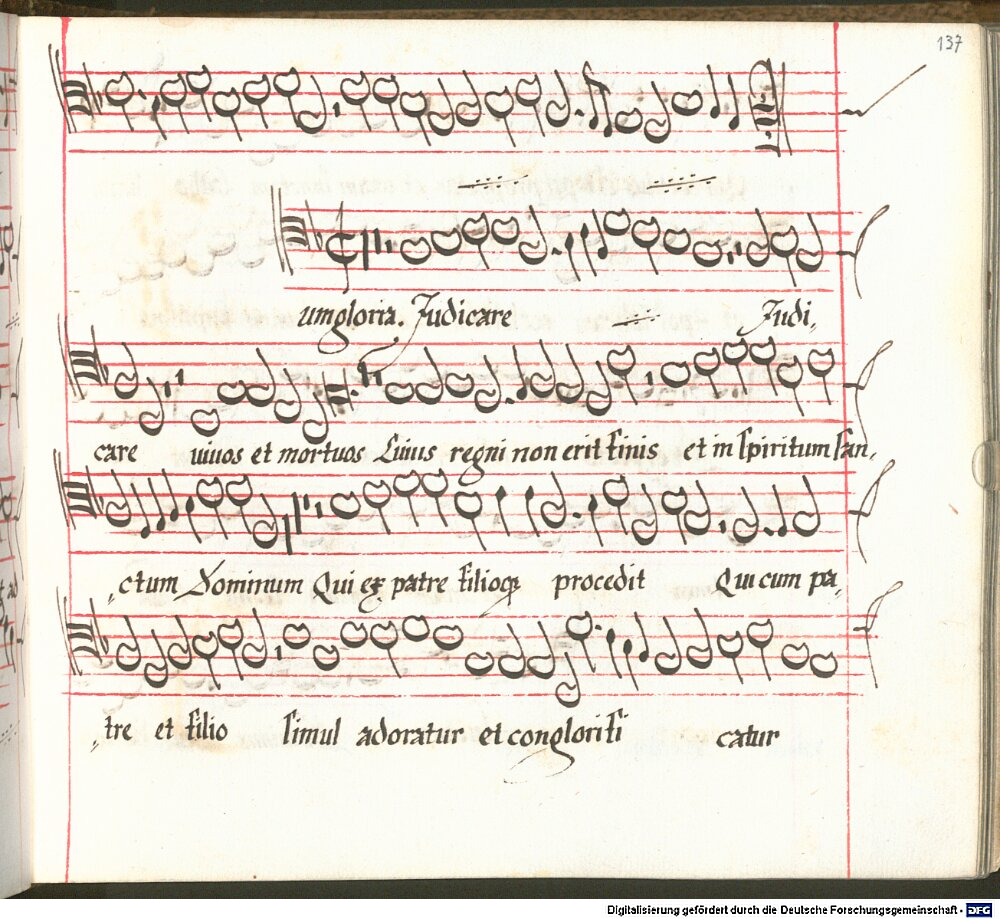 137
um gloria. Judicare Judi,
care vivos et mortuos Cuius regni non erit finis et in spiritum san,
,ctum Dominum Qui ex patre filioq; procedit Qui cum pa,
,tre et filio simul adoratur et conglorifi catur
Digitalisierung gefördert durch die Deutsche Forschungsgemeinschaft - DFG